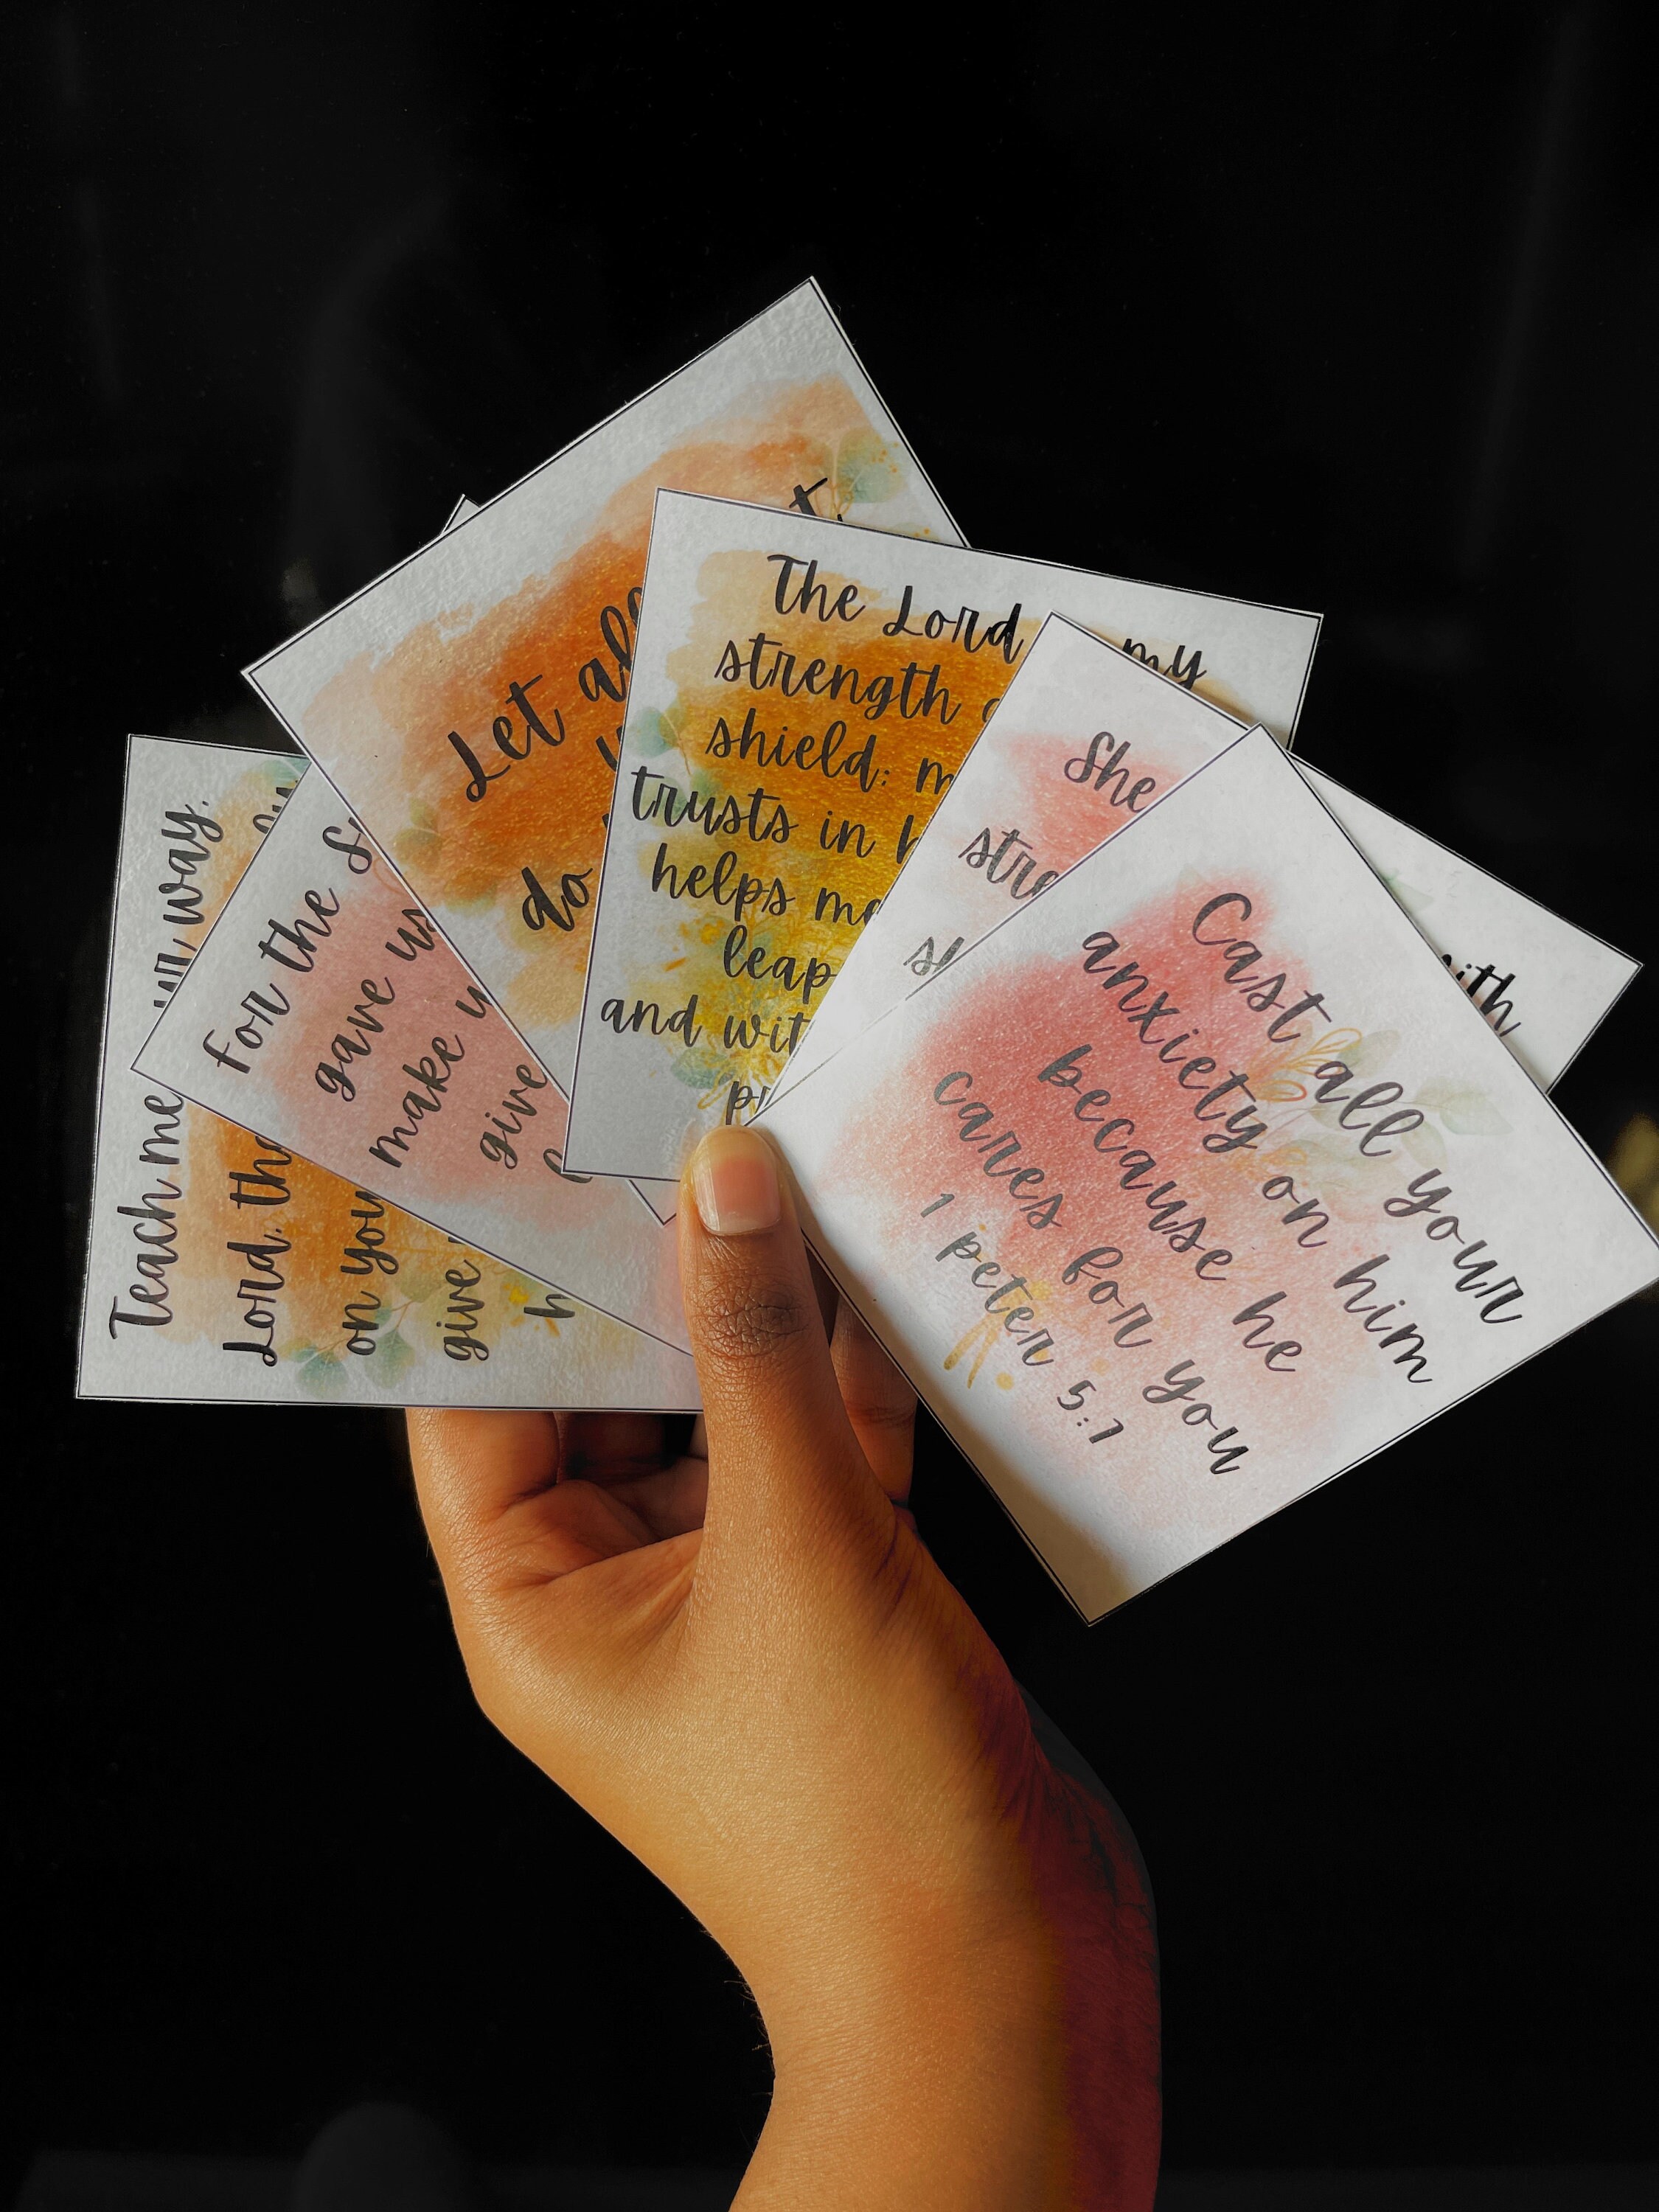 Teach me your way,
Lord, tha
on you
give
h
For the S
gave us
make u
give
Let all
do
t
The Lord my
strength
shield; m
trusts in h
helps me
leap
and wit
pr
She
stre
sh
Cast all your
anxiety on him
because he
cares for you
1 peter 5:7
with